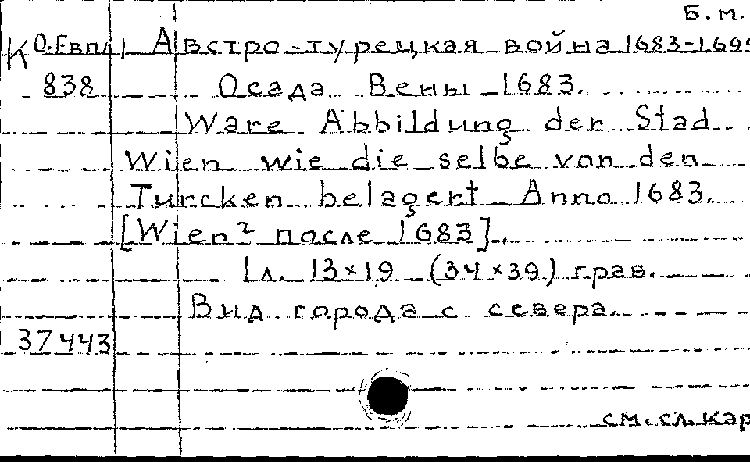 Б.м.
К О.Евпл Австро-турецкая война 1683-1699
838 Осада Вены 1683.
Ware Abbildung der Stad
Wien wie die selbe von den
Turcken belagert Anno 1683.
[Wien? после 1683].
1л. 13×19 (34×39) грав.
Вид города с севера.
37443
см. сл. кар